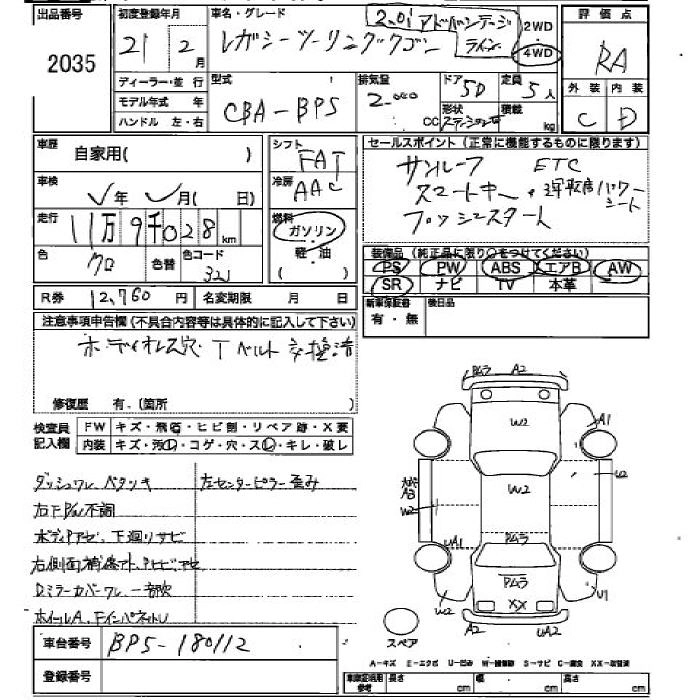 出品番号
2035
初度登録年月
21 2月
車名・グレード
レガシーツーリングワゴン
2.0i アドバンテージ
ライン
2WD
4WD
評価点
RA
外装 内装
C D
ディーラー・並行
モデル年式 年
ハンドル 左・右
型式
CBA-BP5
排気量
2.000
CC
ドア 5D
形状
ステーションW
定員 5人
積載 kg
車歴 自家用( )
車検 年 月( 日)
走行 11万9千028km
色 クロ 色替 色コード 32J
R券 12,760円 名変期限 月 日
シフト
FAT
冷房
AAC
燃料
ガソリン
軽・油
( )
セールスポイント (正常に機能するものに限ります)
サンルーフ ETC
スマートキー・運転席パワーシート
プッシュスタート
装備品 (純正品に限り○をつけてください)
PS PW ABS エアB AW
SR ナビ TV 本革
新車保証書
有・無
後日品
注意事項申告欄(不具合内容等は具体的に記入して下さい)
ボディイオレス穴 Tベルト交換済
修復歴 有.(箇所 )
検査員記入欄
FW キズ・飛石・ヒビ割・リペア跡・X要
内装 キズ・汚レ・コゲ・穴・スレ・キレ・破レ
ダッシュワレ ベタツキ
左センターピラー歪み
右F P/W不調
ボディアセ、下廻リサビ
右側面補修アト、
Dミラーカバーワレ、一部欠
ホイールA、
車台番号 BP5-180112
登録番号
Pムラ A2
W2
A1
U2
W2
A3
W2
UA1
Pムラ
Pムラ
XX
W2
U1
A2
UA2
スペア
A-キズ E-エクボ U-凹み W-補修跡 S-サビ C-腐食 XX-交替済
車庫証明用参考 長さ cm 幅 cm 高さ cm